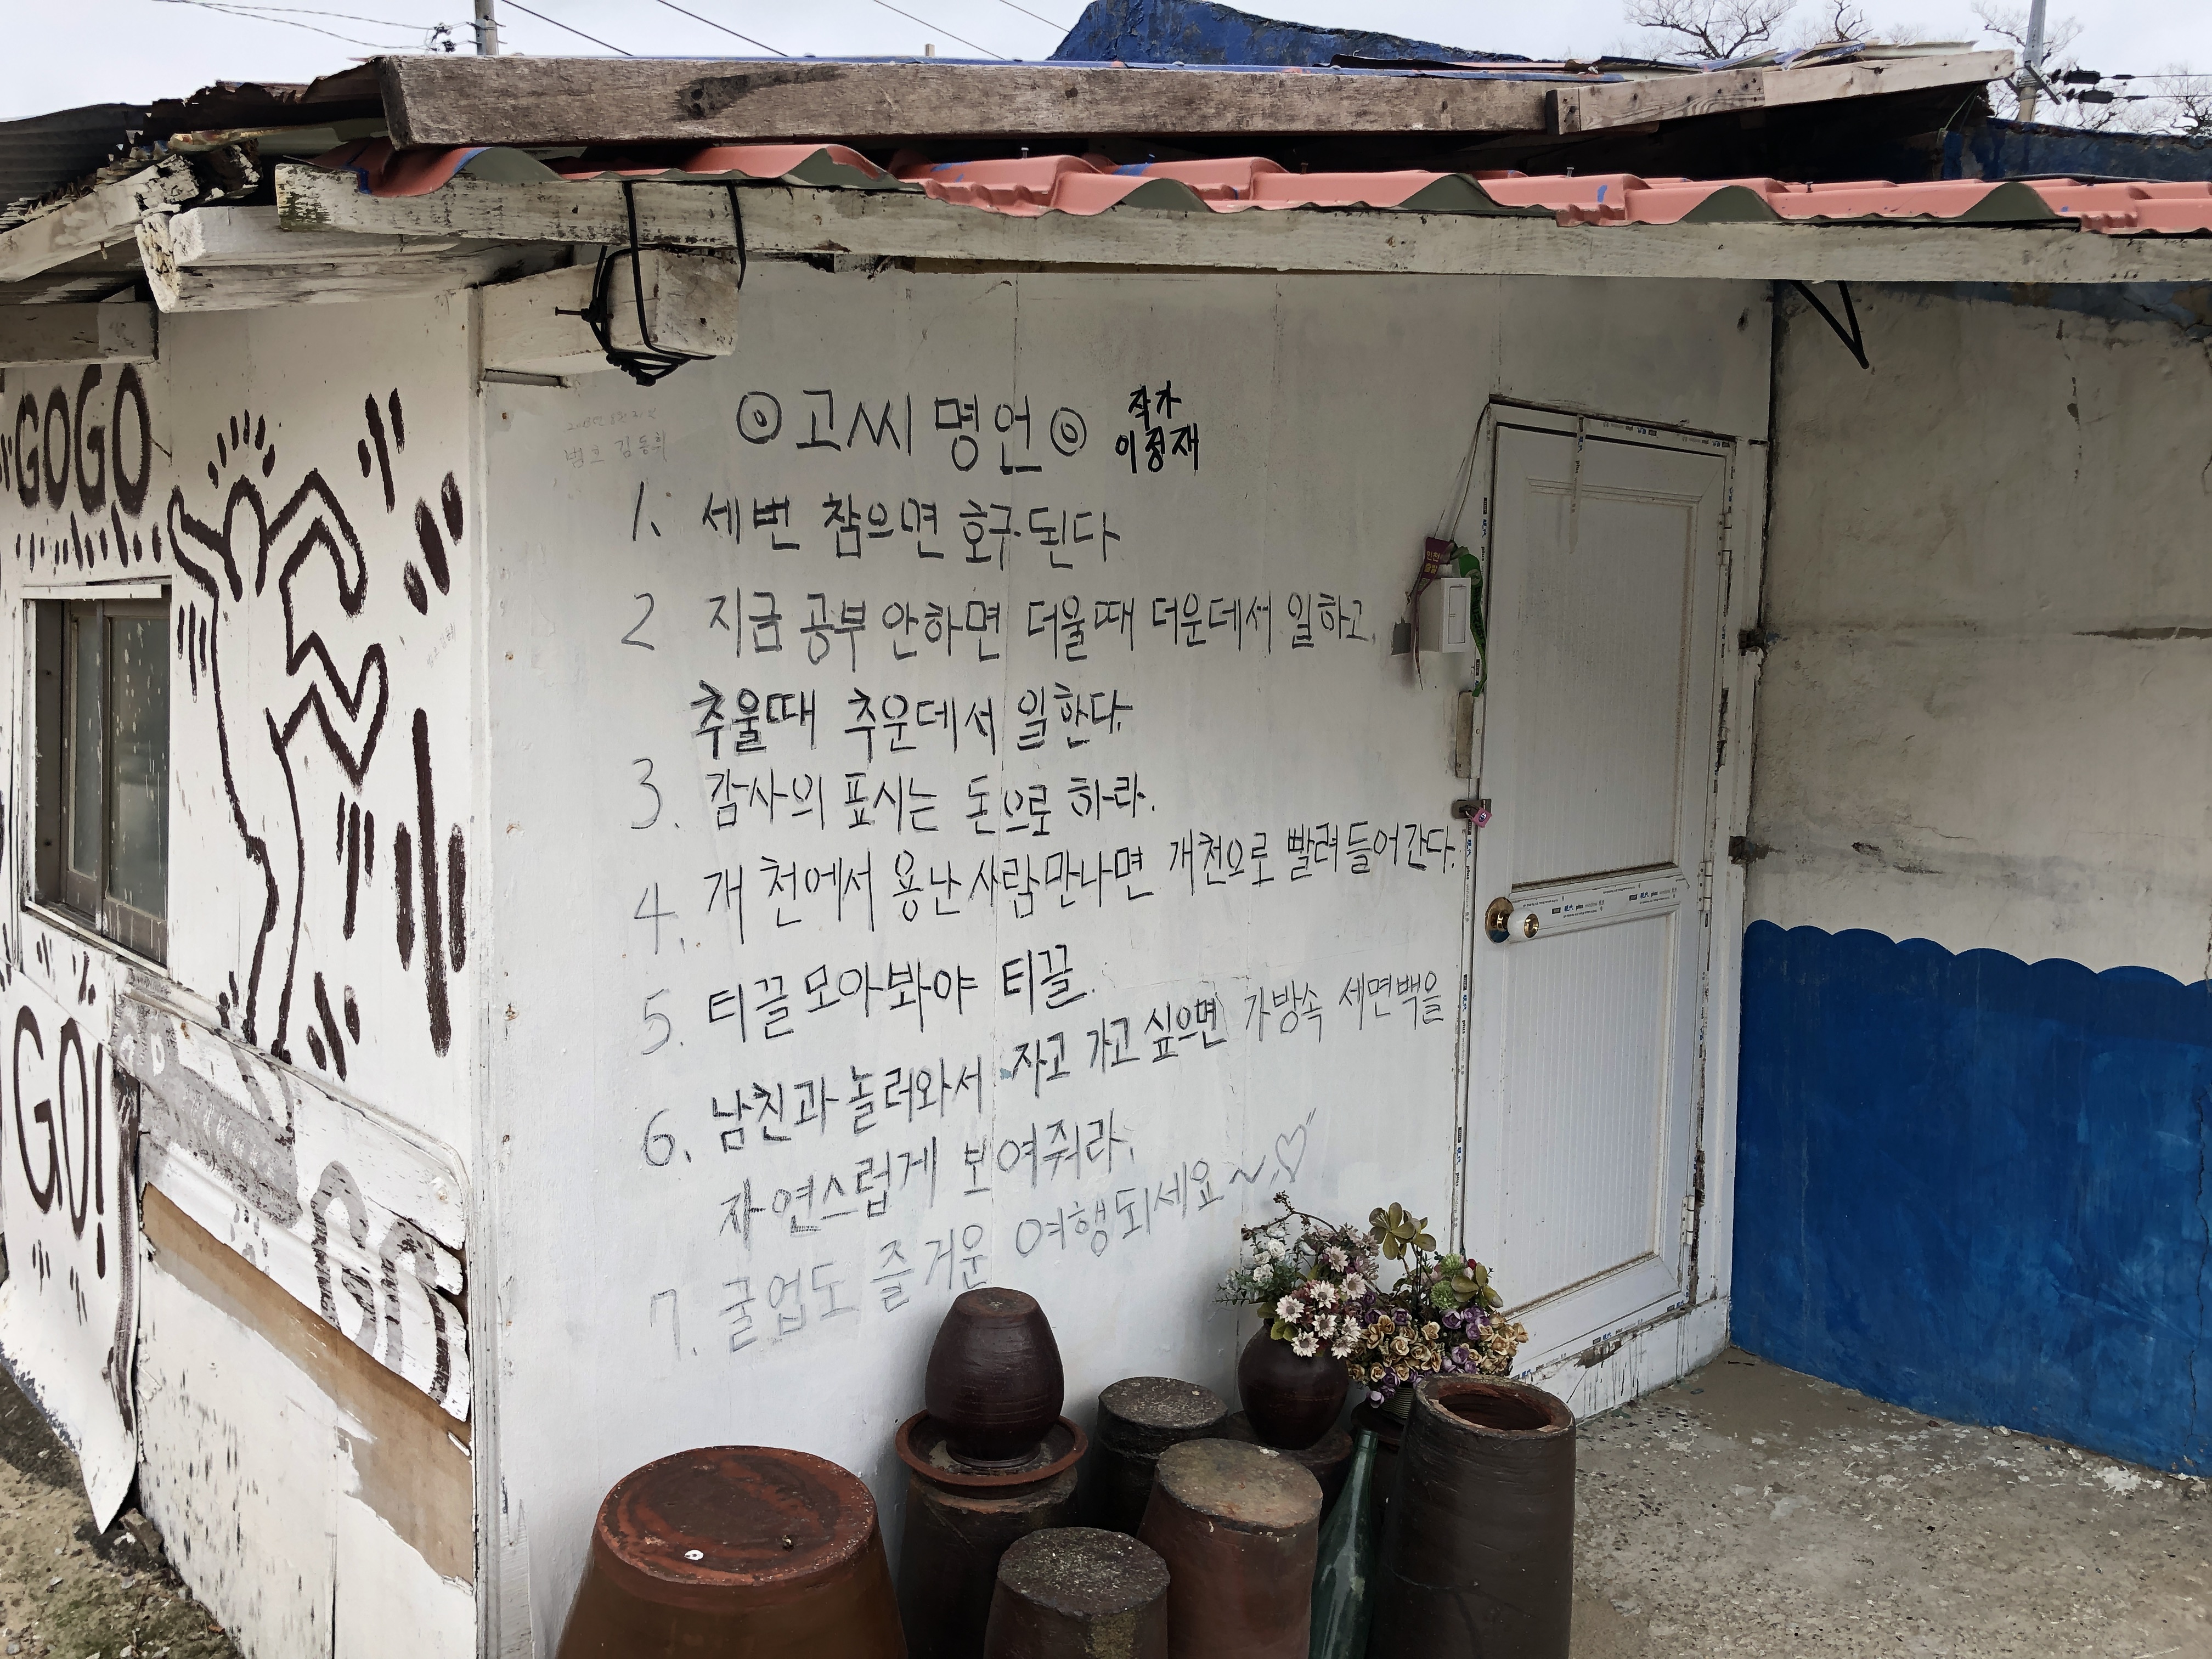 GOGO
GO!
GO
김동희
◎고씨 명언◎
작가
이정재
1. 세번 참으면 호구된다
2 지금 공부 안하면 더울때 더운데서 일하고,
추울때 추운데서 일한다.
3. 감사의 표시는 돈으로 하라.
4. 개천에서 용난 사람만나면 개천으로 빨려들어간다.
5. 티끌모아봐야 티끌.
6. 남친과 놀러와서 자고 가고 싶으면 가방속 세면백을
자연스럽게 보여줘라.
7. 굴업도 즐거운 여행되세요~♡